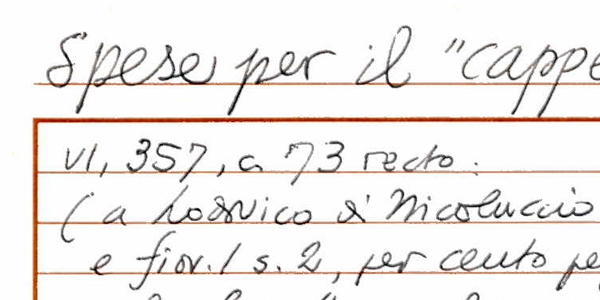 Spese per il "cappe
VI, 357, c. 73 recto.
(a Lodovico di Nicoluccio
e fior. 1 s. 2, per cento pe